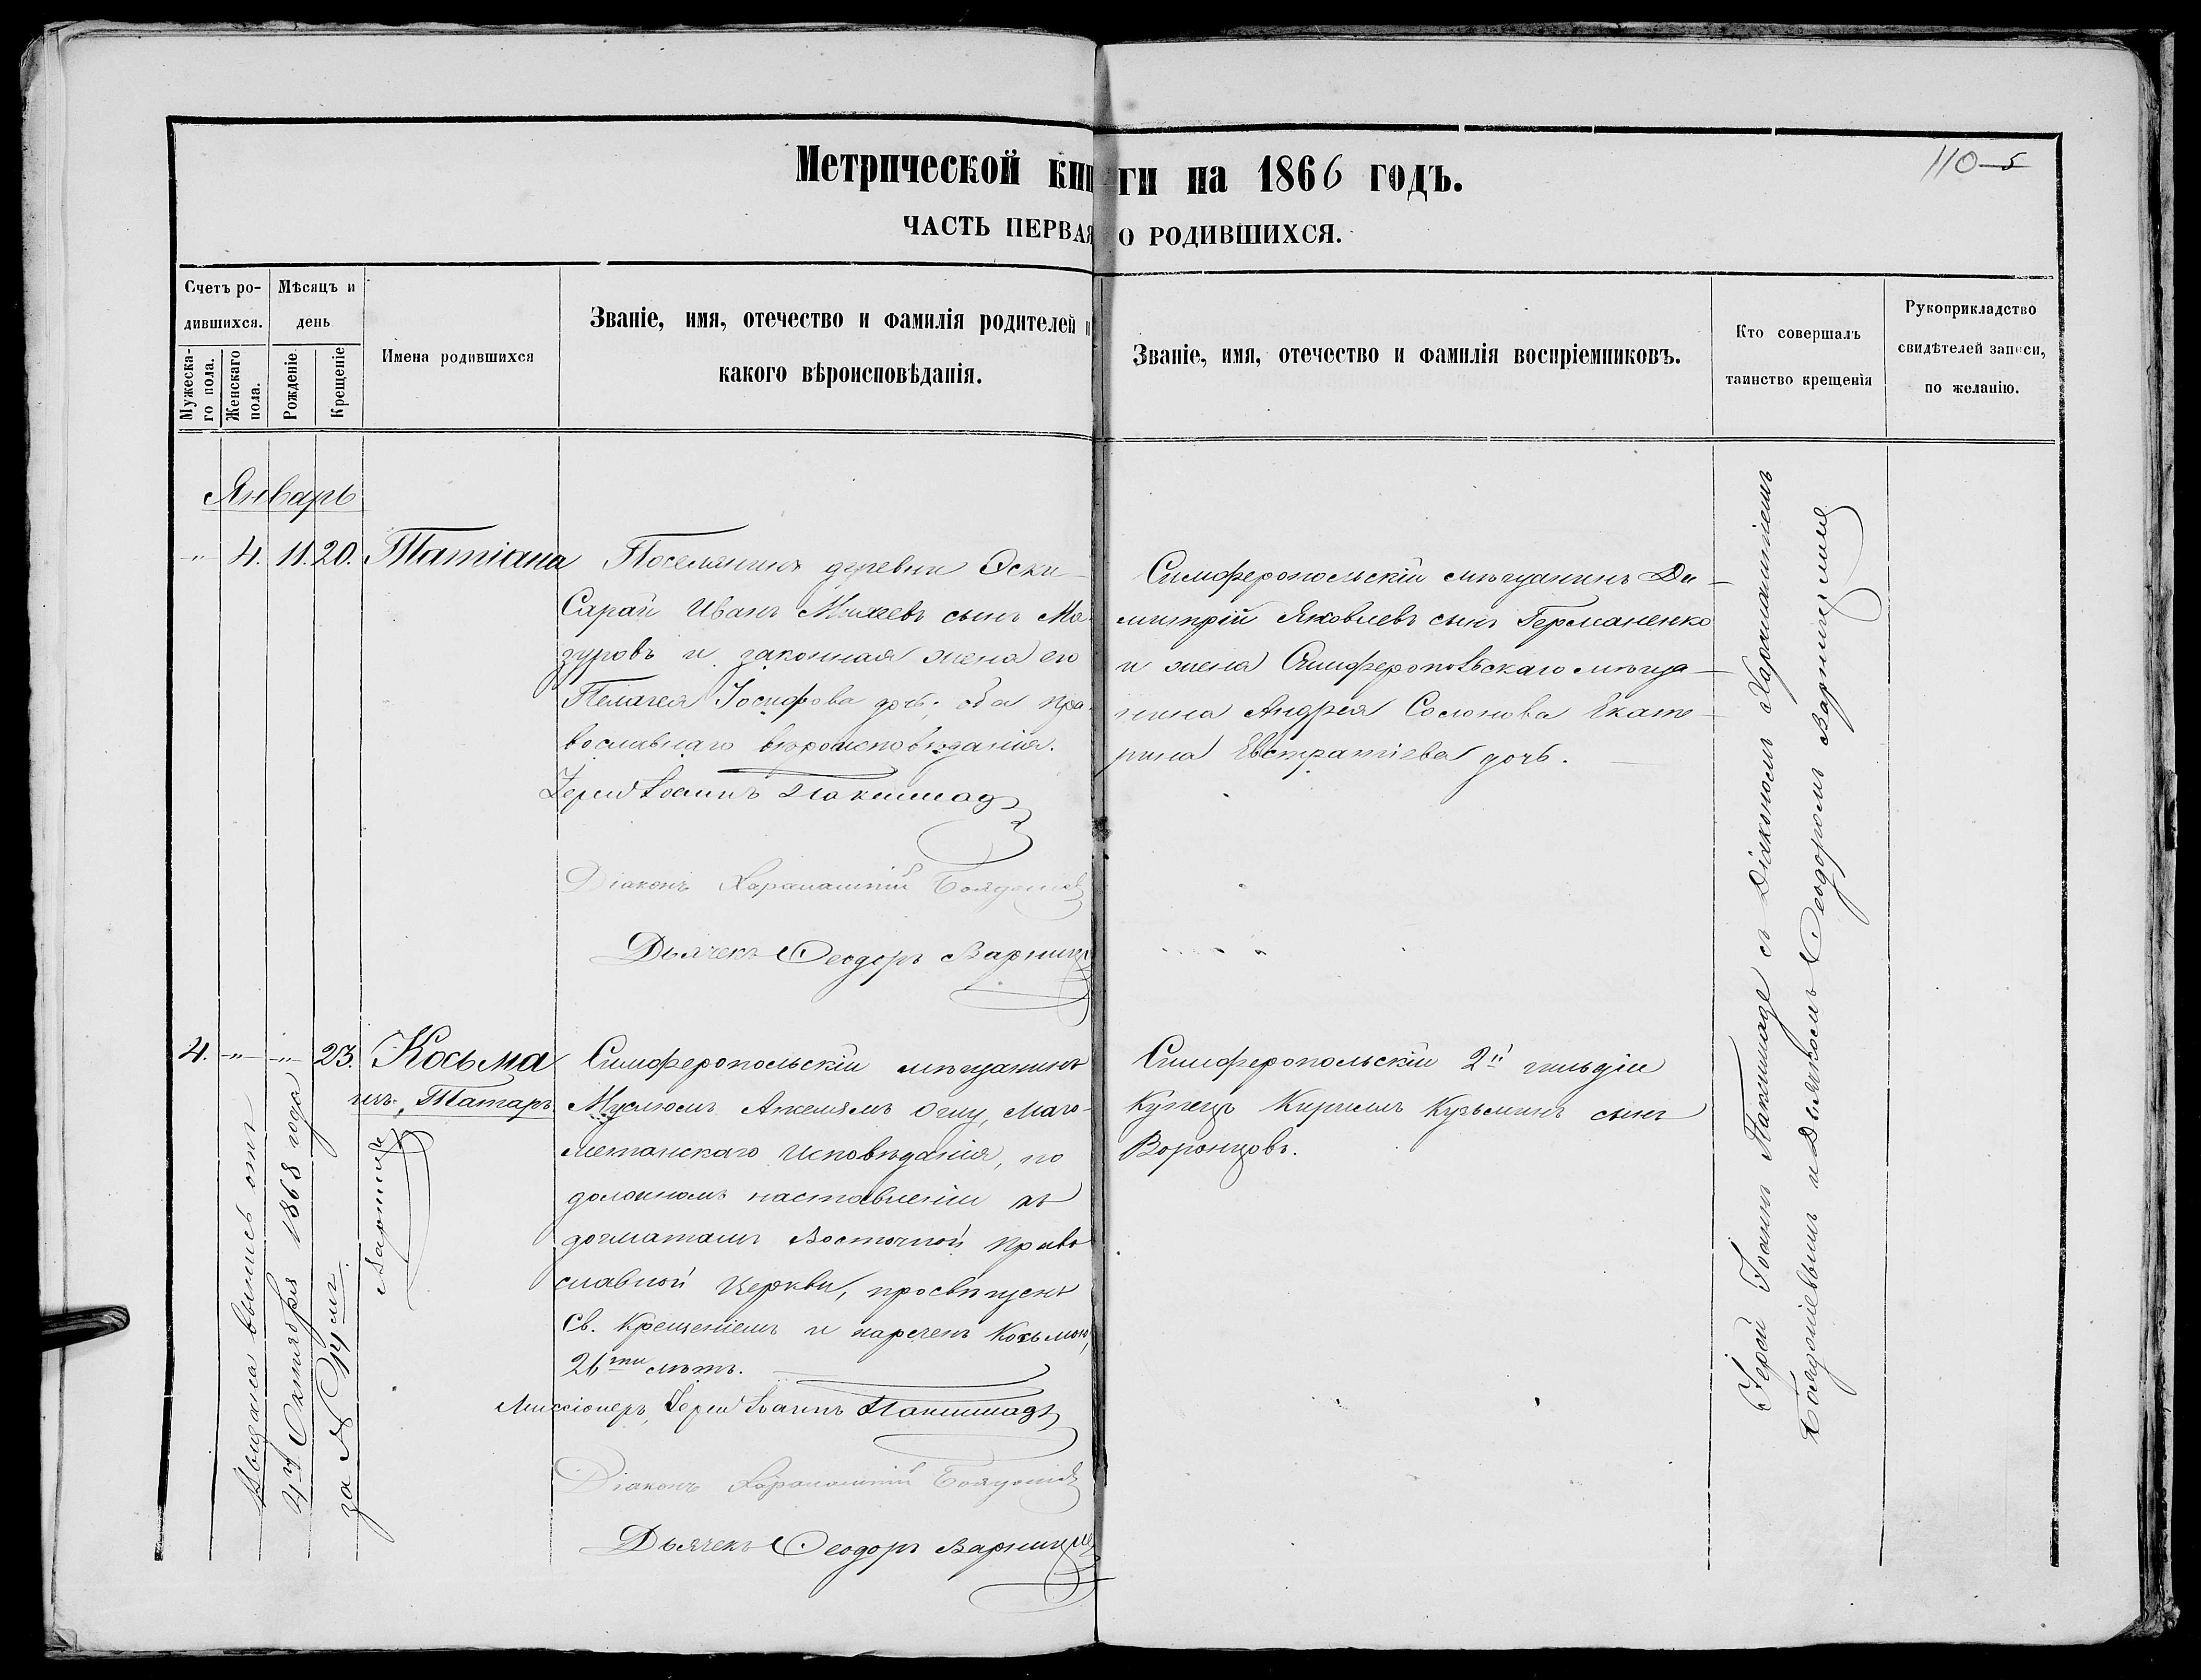 Метрической книги на 1866 годъ.
110
ЧАСТЬ ПЕРВАЯ О РОДИВШИХСЯ.
Счетъ ро-
дившихся.
Мужеска-
го пола.
Женскаго
пола.
Мѣсяцъ и
день
Рожденіе.
Крещеніе
Имена родившихся
Званіе, имя, отечество и фамилія родителей и
какого вѣроисповѣданія.
Званіе, имя, отечество и фамилія воспріемниковъ.
Кто совершалъ
таинство крещенія
Рукоприкладство
свидѣтелей записи,
по желанію.
Январь
„ 4. 11. 20. Татіана
Поселянинъ деревни Эски-
Сарай Иванъ Михеевъ сынъ Ма-
зуровъ и законная жена его
Пелагея Іосифова дочь; оба пра-
вославнаго вѣроисповѣданія.
Іерей Іоаннъ
Діаконъ Харалампій
Дьячекъ Ѳеодоръ
Симферопольскій мѣщанинъ Ди-
митрій Яковлевъ сынъ Германенко
и жена Симферопольскаго мѣща-
нина Андрея Солонова Екате-
рина Евстратіева дочь.
4. -„- -„- 23. Косьма
изъ Татаръ
Симферопольскій мѣщанинъ
Муслюмъ Ажелямъ Оглу, Маго-
метанскаго Исповѣданія, по
должномъ наставленіи въ
догматахъ Восточной Право
славной Церкви, просвѣщенъ
Св. Крещеніемъ и нареченъ Косьмою,
26ти лѣтъ.
Миссіонеръ, Іерей Іоаннъ
Діаконъ Харалампій
Дьячекъ Ѳеодоръ
Симферопольскій 2й гильдіи
Купецъ Кириллъ Кузьминъ сынъ
Воронцовъ.
Выдана выпись отъ
4го Октября 1868 года
за № 14мъ.
Іерей Іоаннъ съ Діакономъ Харалампіемъ
и Дьячкомъ Ѳеодоромъ